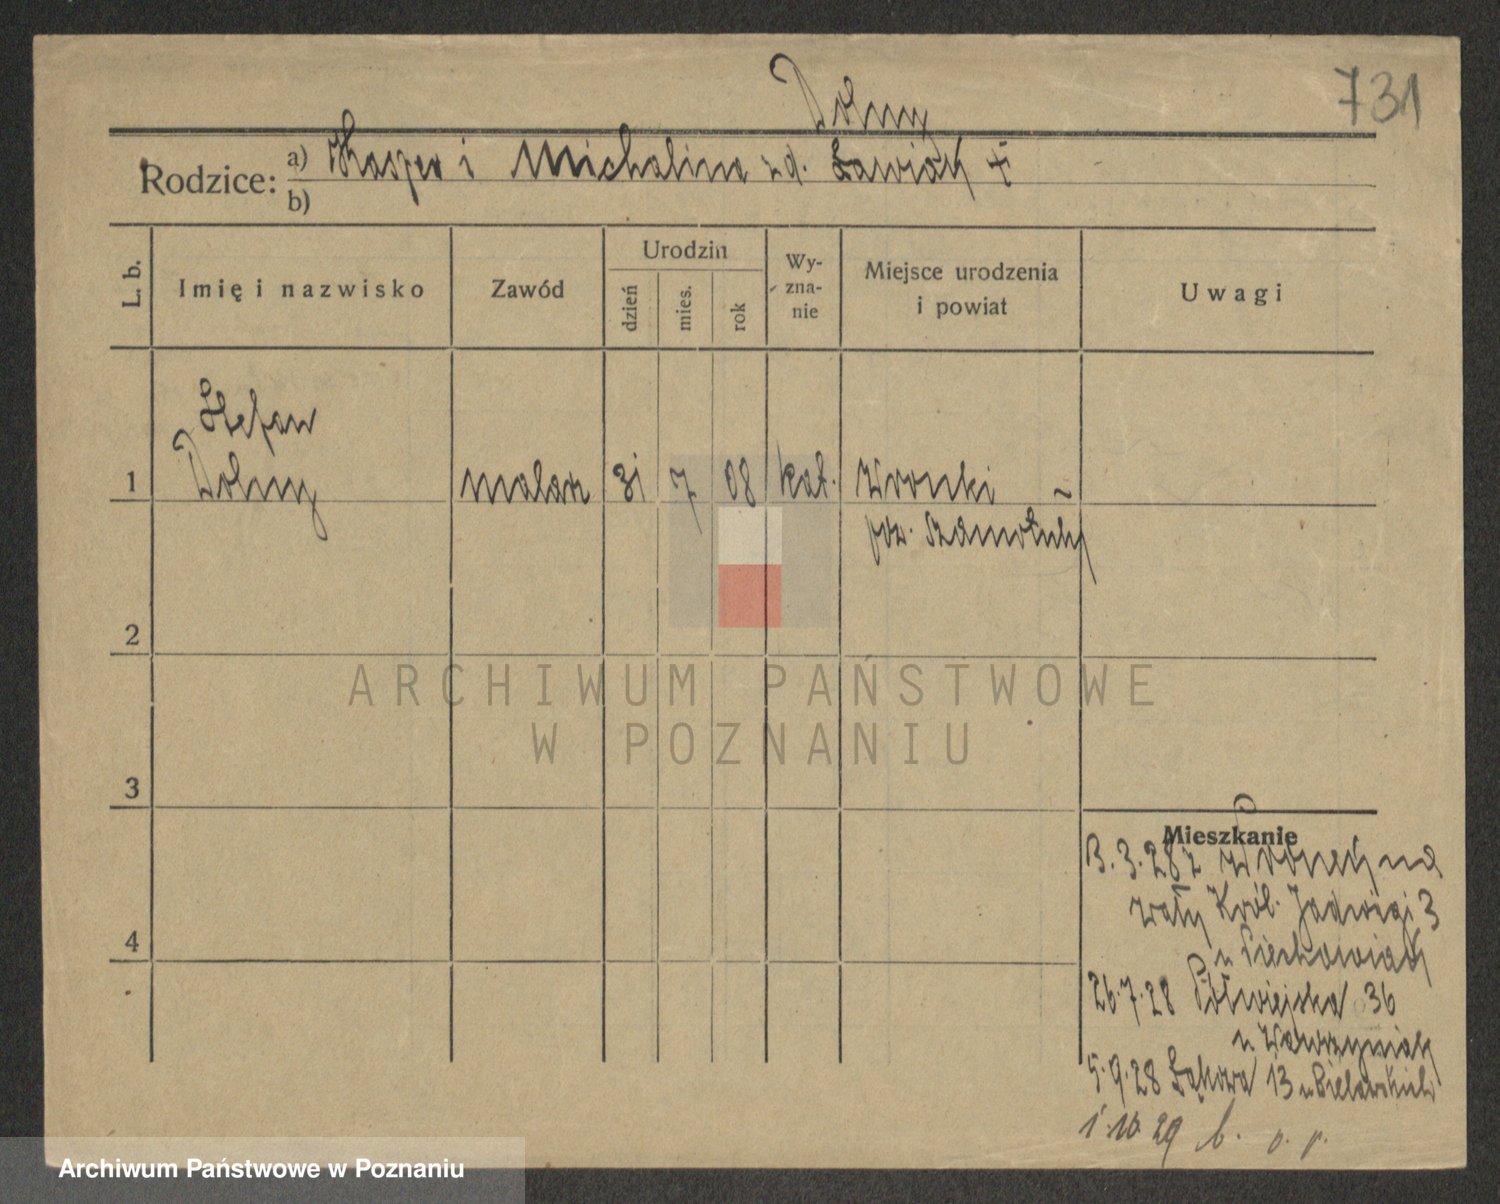 Dolny
731
Rodzice:
a) Kasper i Michalina zd. Ławiak +
b)
L. b.
Imię i nazwisko
Zawód
Urodzin
dzień
mies.
rok
Wy-
zna-
nie
Miejsce urodzenia
i powiat
Uwagi
Stefan
1 Dolny malarz 31 7 08 kat. Wronki
pow. Szamotuły
2
3
4
Mieszkanie
3.28 z Wronek na
Wały Król. Jadwigi 3
u Piechowiak
26.7.28 Półwiejska 36
u Wawrzyniak
5.9.28 Łąkowa 13 u
1.10.29
ARCHIWUM PAŃSTWOWE
W POZNANIU
Archiwum Państwowe w Poznaniu